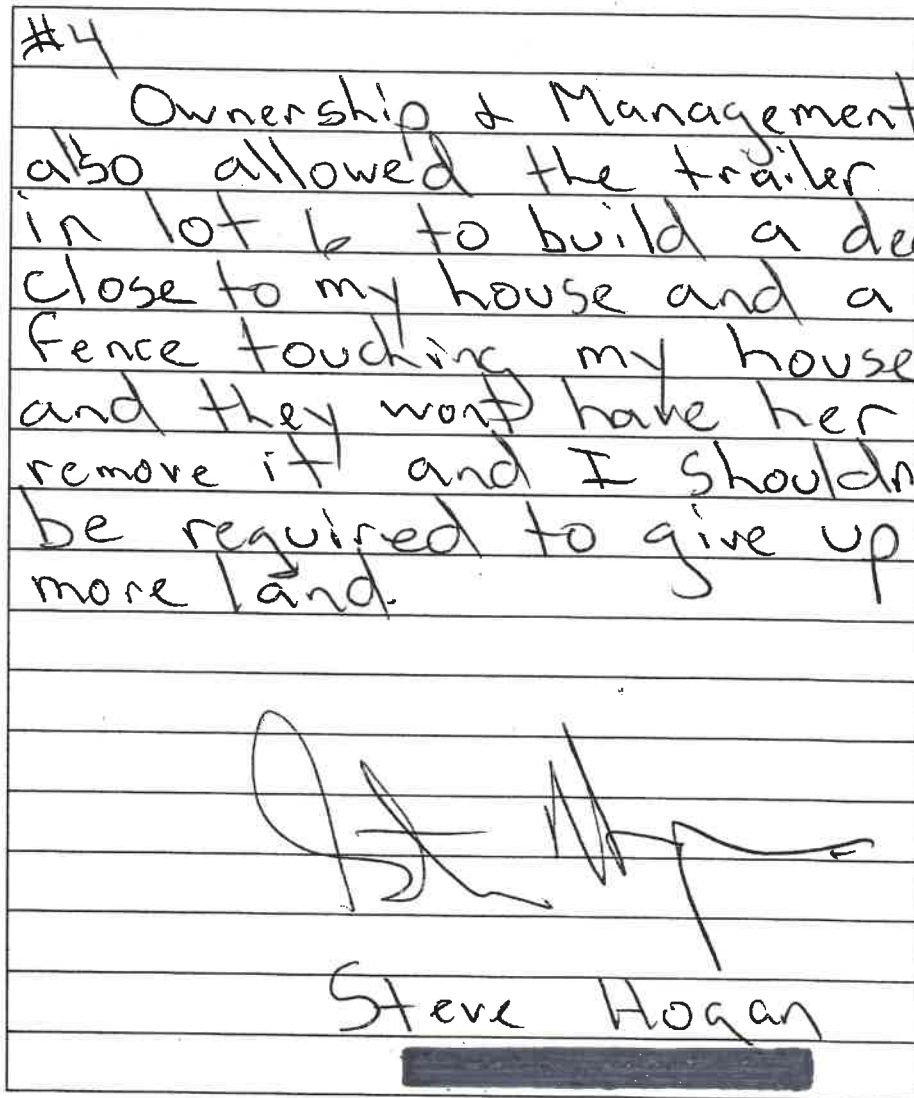 #4
Ownership & Management
also allowed the trailer
in lot 6 to build a dec
close to my house and a
fence touching my house
and they wont have her
remove it and I shouldn
be required to give up
more land.
Steve Hogan